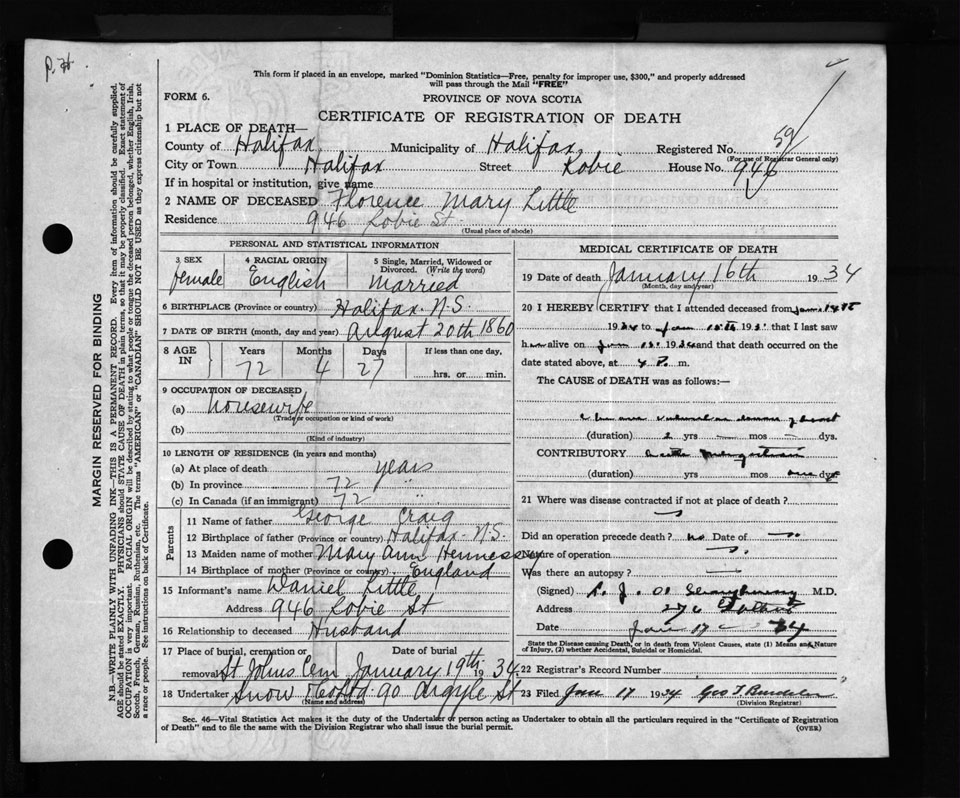 P. H.
This form if placed in an envelope, marked "Dominion Statistics—Free, penalty for improper use, $300," and properly addressed
will pass through the Mail "FREE"
FORM 6.
PROVINCE OF NOVA SCOTIA
CERTIFICATE OF REGISTRATION OF DEATH
1 PLACE OF DEATH—
County of Halifax Municipality of Halifax Registered No. 59
(For use of Registrar General only)
City or Town Halifax Street Robie House No. 946
If in hospital or institution, give name
2 NAME OF DECEASED Florence Mary Little
Residence 946 Robie St
(Usual place of abode)
PERSONAL AND STATISTICAL INFORMATION
3 SEX
female
4 RACIAL ORIGIN
English
5 Single, Married, Widowed or
Divorced. (Write the word)
Married
6 BIRTHPLACE (Province or country) Halifax N.S.
7 DATE OF BIRTH (month, day and year) August 20th 1860
8 AGE IN
Years Months Days If less than one day,
72 4 27 hrs. or min.
9 OCCUPATION OF DECEASED
(a) housewife
(Trade or occupation or kind of work)
(b)
(Kind of industry)
10 LENGTH OF RESIDENCE (in years and months)
(a) At place of death years
(b) In province 72 "
(c) In Canada (if an immigrant) 72 "
Parents
11 Name of father George Craig
12 Birthplace of father (Province or country) Halifax N.S.
13 Maiden name of mother Mary Ann Hennessey
14 Birthplace of mother (Province or country) England
15 Informant's name Daniel Little
Address 946 Robie St
16 Relationship to deceased Husband
17 Place of burial, cremation or removal Date of burial
St Johns Cem January 19th 1934
18 Undertaker Snow & Co Ltd 90 Argyle St
(Name and address)
MEDICAL CERTIFICATE OF DEATH
19 Date of death January 16th 1934
(Month, day and year)
20 I HEREBY CERTIFY that I attended deceased from Jan
1934 to Jan 193 that I last saw
h alive on Jan 193 and that death occurred on the
date stated above, at 4 P. m.
The CAUSE OF DEATH was as follows:
(duration) 2 yrs — mos — dys.
CONTRIBUTORY
(duration) yrs mos dys
21 Where was disease contracted if not at place of death?
Did an operation precede death? no Date of
Nature of operation
Was there an autopsy?
(Signed) M.D.
Address
Date Jan 17 34
State the Disease causing Death, or in death from Violent Causes, state (1) Means and Nature
of Injury, (2) whether Accidental, Suicidal or Homicidal.
22 Registrar's Record Number
23 Filed Jan 17 1934 Geo T
(Division Registrar)
Sec. 46—Vital Statistics Act makes it the duty of the Undertaker or person acting as Undertaker to obtain all the particulars required in the "Certificate of Registration
of Death" and to file the same with the Division Registrar who shall issue the burial permit. (OVER)
MARGIN RESERVED FOR BINDING
N.B.—WRITE PLAINLY WITH UNFADING INK—THIS IS A PERMANENT RECORD. Every item of information should be carefully supplied.
AGE should be stated EXACTLY. PHYSICIANS should STATE CAUSE OF DEATH in plain terms, so that it may be properly classified. Exact statement of
OCCUPATION is very important. RACIAL ORIGIN will be described by stating to what people or tongue the deceased person belonged, whether English, Irish,
Scotch, French, German, Russian, Ruthenian, etc. The terms "AMERICAN" or "CANADIAN" SHOULD NOT BE USED as they express citizenship but not
a race or people. See instructions on back of Certificate.